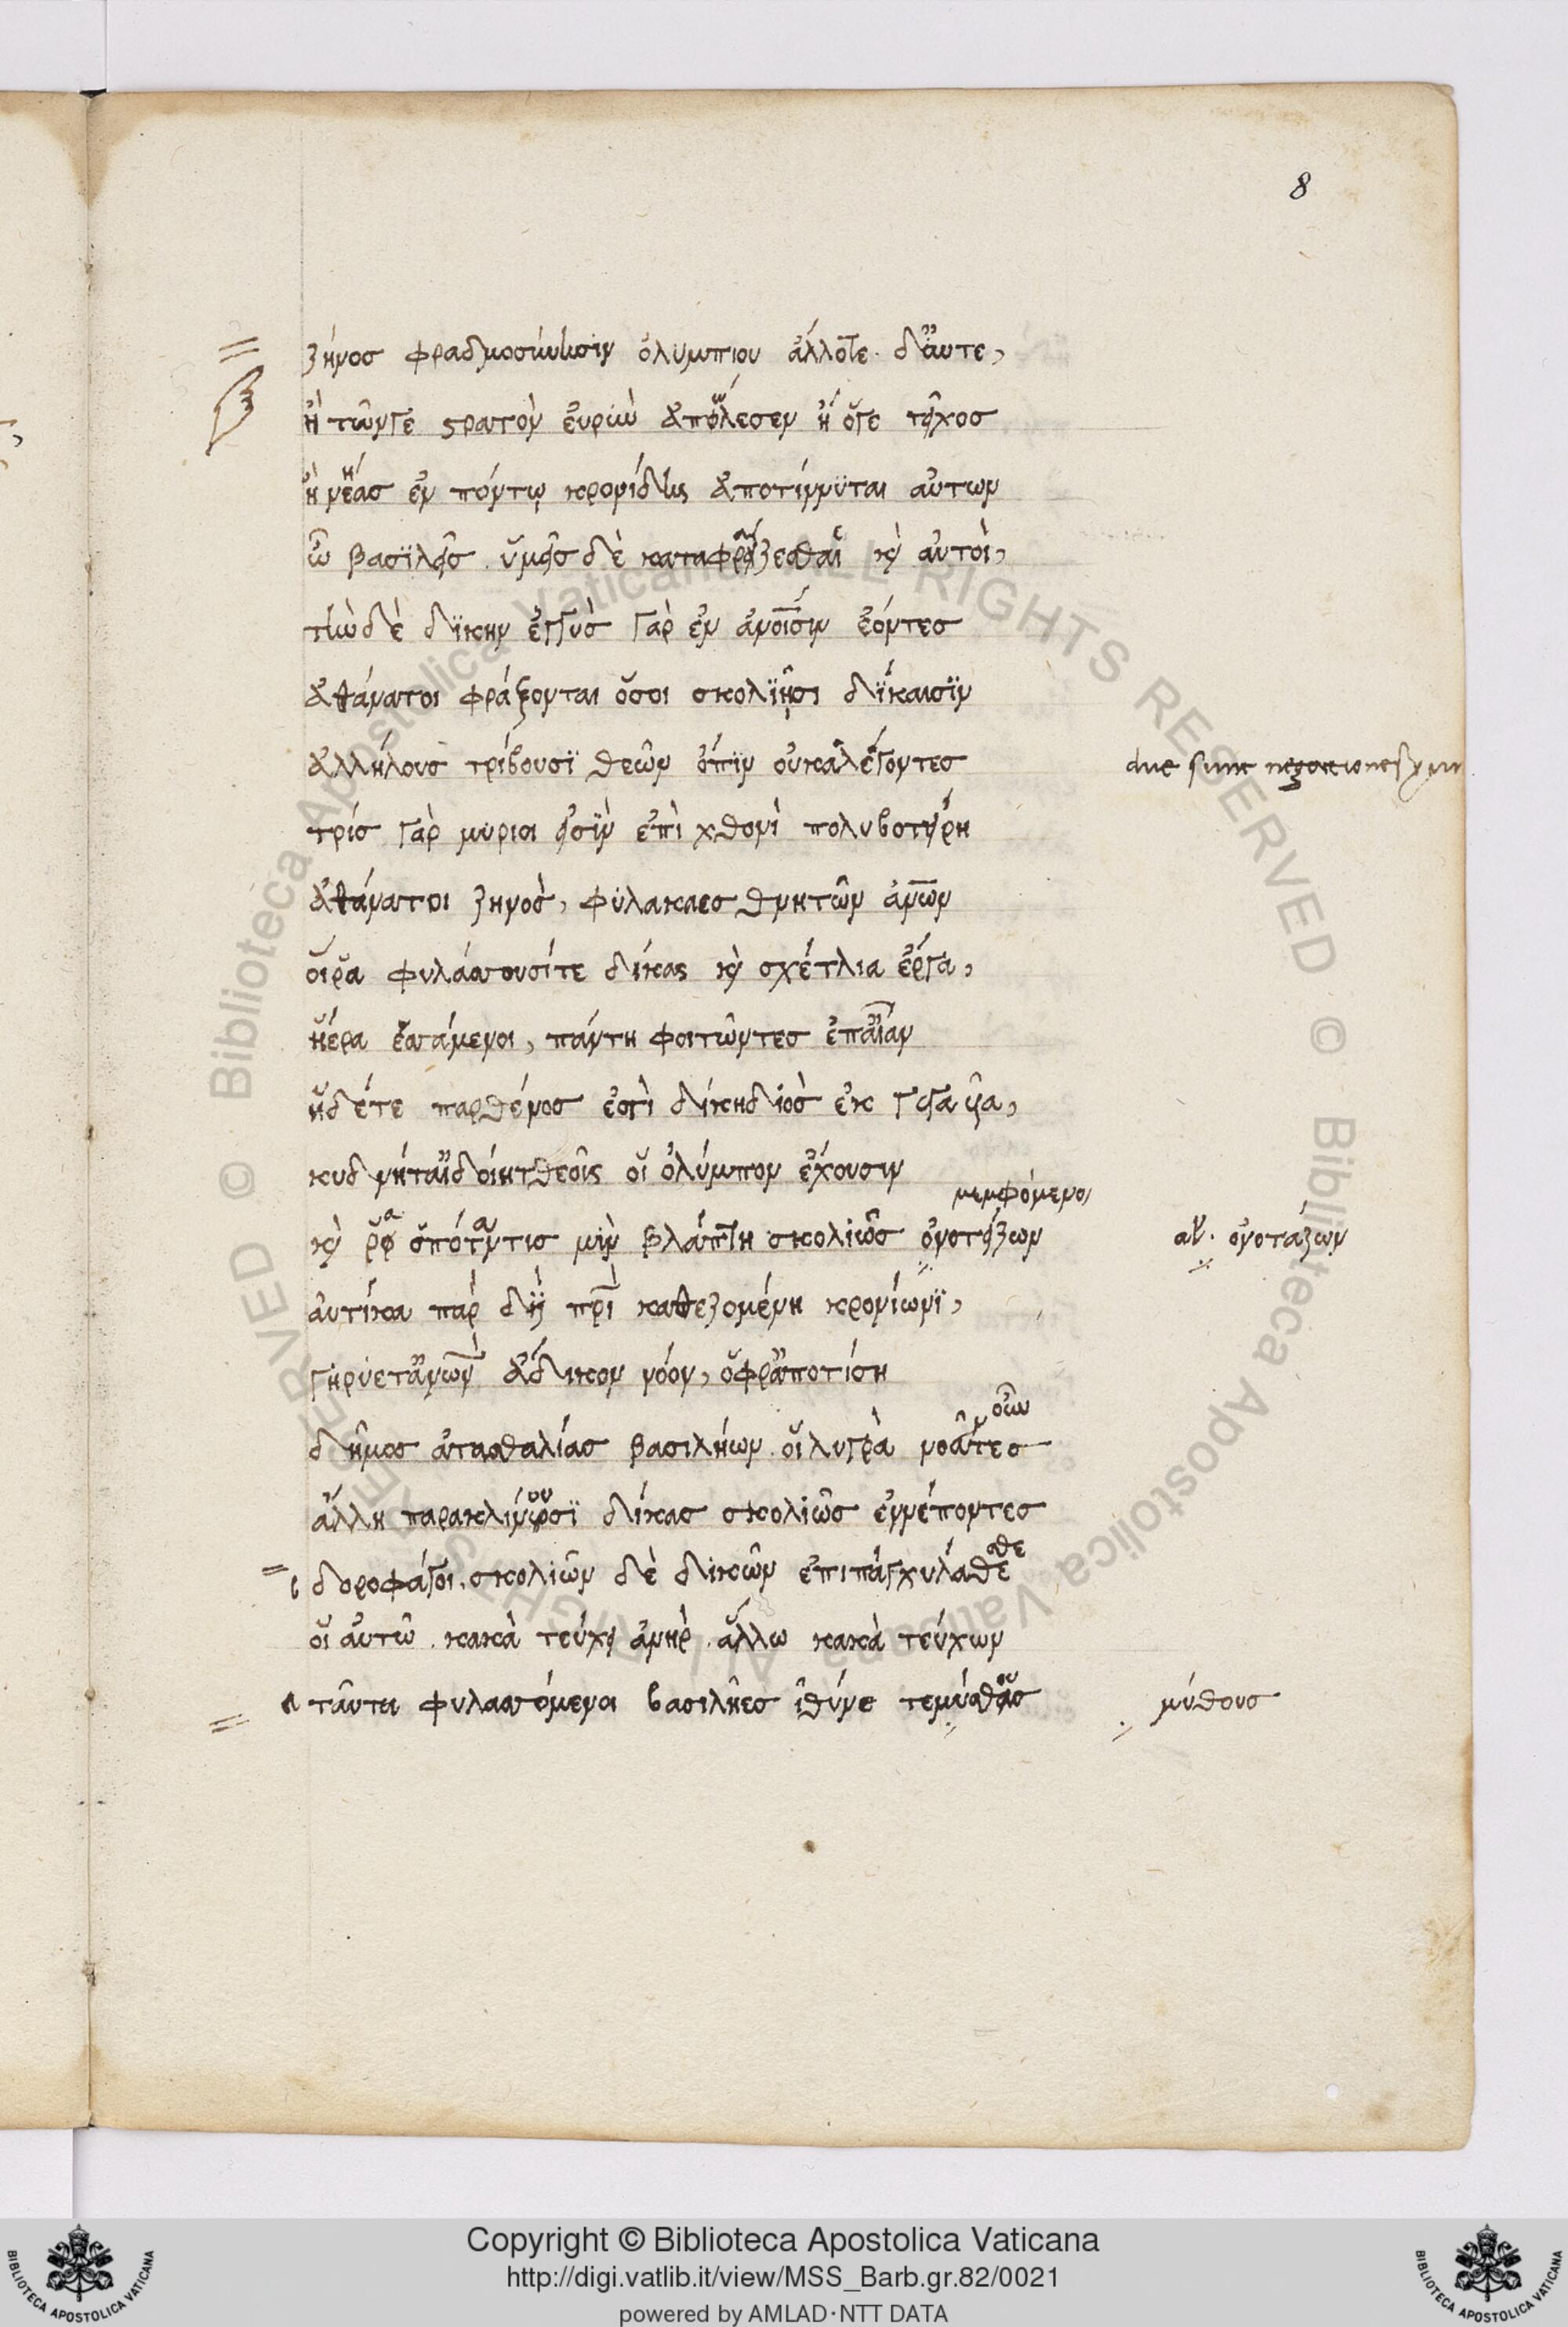 8
ζήνος φραδμοσύνησιν ὀλυμπιου ἄλλοτε δ' ἄυτε,
ἢ τῶνγε στρατὸν ἐυρὺν ἀπώλεσεν ἢ ὅγε τεῖχος
ἢ νῆας ἐν πόντω κρονίδης ἀποτίννϋται αὐτων
ὦ βασϊλεῖς ὕμεῖς δὲ καταφράζεσθαι καὶ αὐτοὶ,
τὴνδὲ δϊκην ἐγγυὸς γαρ ἐν ἀνοῖσιν ἐόντες
ἀθάνατοι φράζονται ὅσοι σκολϊῆσι δϊκαισϊν
ἀλλήλους τρίβουσϊ θεῶν ὄπϊν οὐκαλέγοντες
due sunt negationes
τρίς γὰρ μυριοι εἰσϊν ἐπὶ χθονὶ πολυβοτείρη
ἀθάνατοι ζηνὸς, φύλακαες θνητῶν ἀνων
οἵρα φυλάσσουσίτε δίκας καὶ σχέτλια ἔργα,
ἤέρα ἑσσάμενοι, πάντη φοιτῶντες ἐπαῖαν
ἤδέτε παρθένος ἐστὶ δίκηδϊὸς ἐκ γεγαυῖα,
κυδνήταϊδοίητθεοῖς οἵ ὀλύμπον ἔχουσιν
μεμφόμενο
καὶ ῥα ὅπότάντις μϊν βλάπτη σκολιῶς ὀνοτείζων
αλ. ὀνοτάζων
αυτίκα παρ δϊῒ πρὶ καθεζομένη κρονίωνϊ,
γηρύεταἄνων ἄδικον νόον, ὄφραποτίση
δῆμος ἀτασθαλίας βασιλήων οἵ λυγρὰ νοᾶτες
ἄλλη παρακλίνωσϊ δίκας σκολιῶς ἐννέποντες
δοροφάγοι. σκολιῶν δὲ δικῶν ἐπιπάγχυλάθε
σθε
οἵ αὐτῶ κακὰ τεύχει ἀνηρ ἄλλω κακὰ τεύχων
ταῦτα φυλασσόμενοι βασιλῆες ἰθύνε τεμύθας
μύθους
Copyright © Biblioteca Apostolica Vaticana
http://digi.vatlib.it/view/MSS_Barb.gr.82/0021
powered by AMLAD·NTT DATA